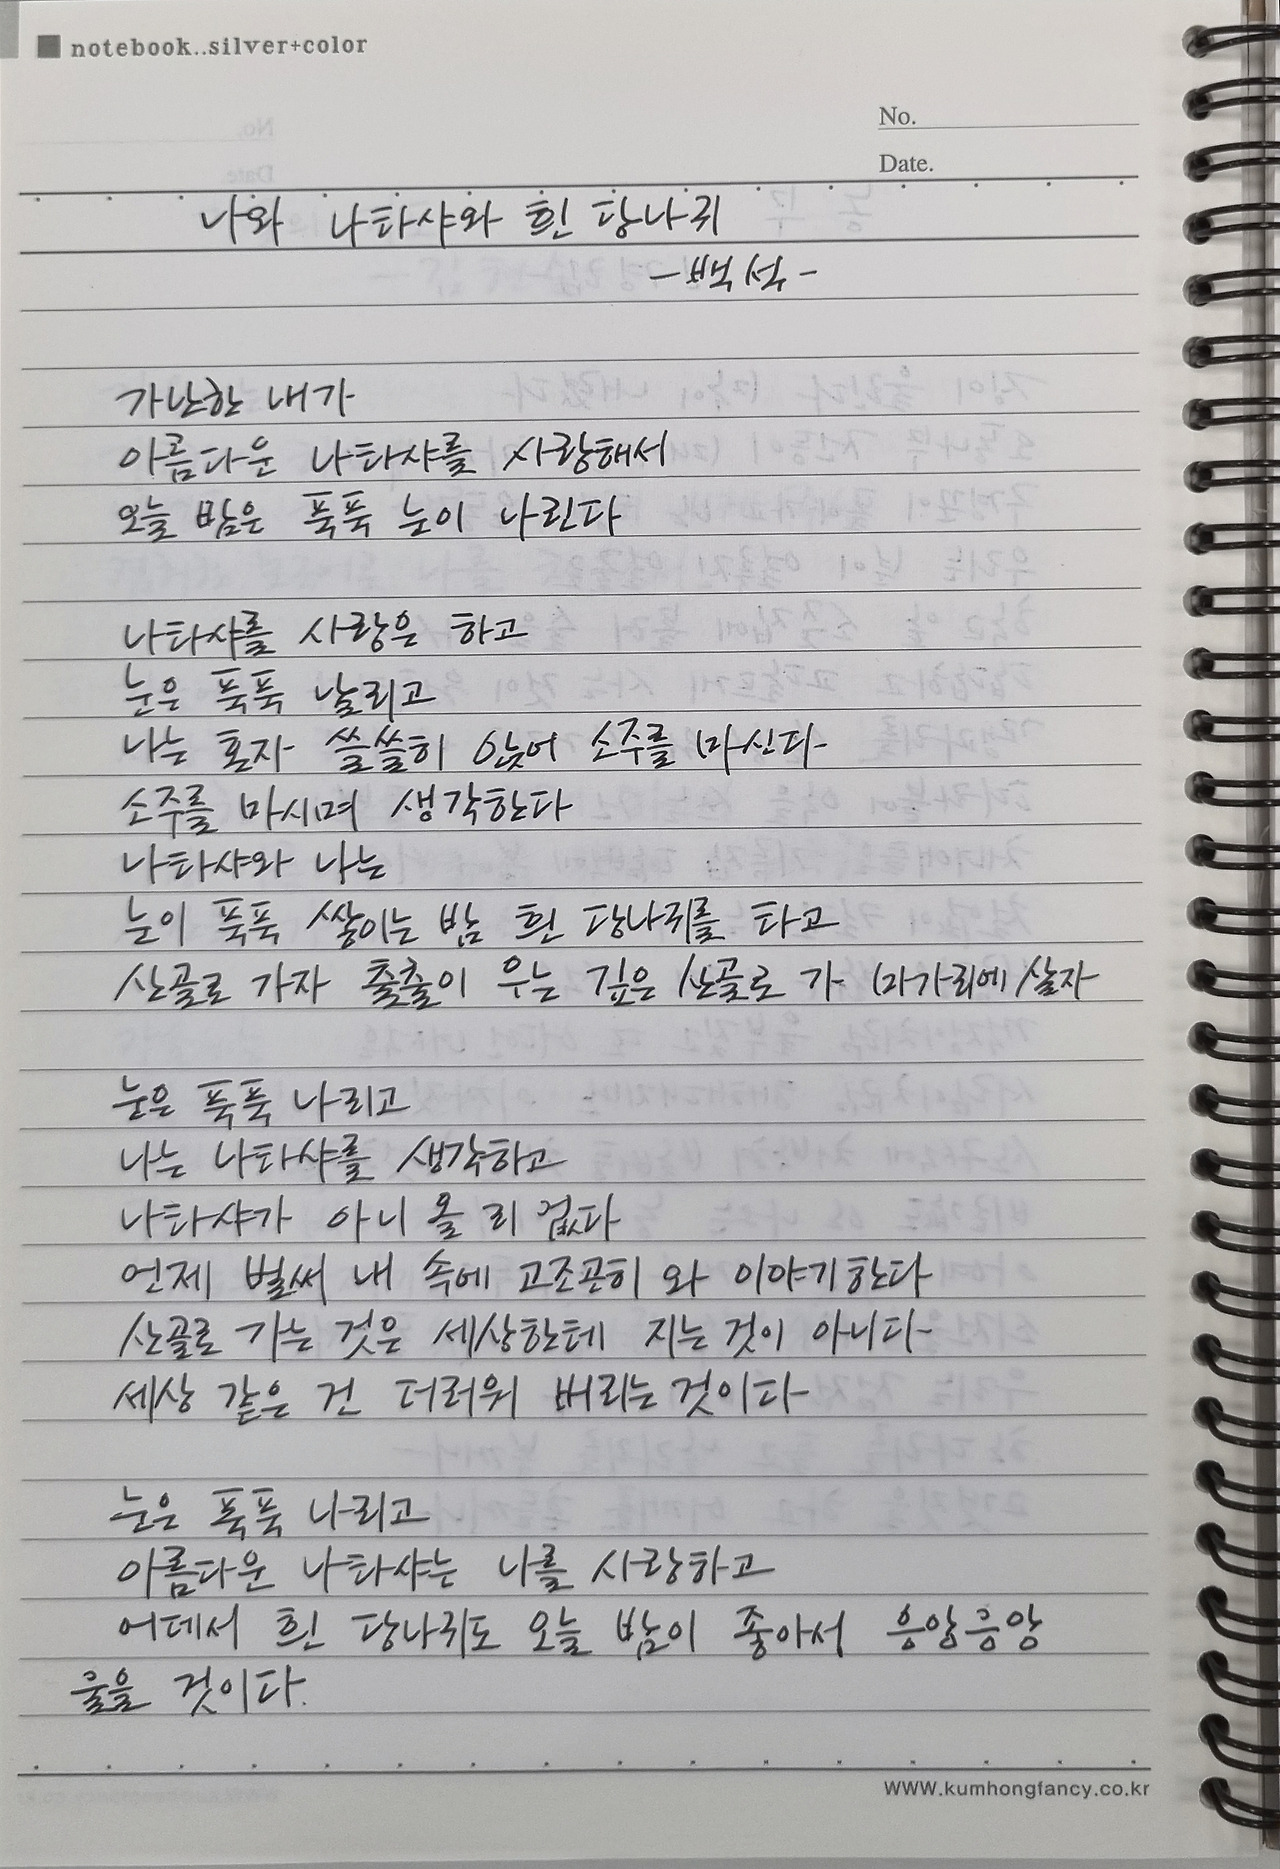 notebook..silver+color
No.
Date.
나와 나타샤와 흰 당나귀
-백석-
가난한 내가
아름다운 나타샤를 사랑해서
오늘 밤은 푹푹 눈이 나린다
나타샤를 사랑은 하고
눈은 푹푹 날리고
나는 혼자 쓸쓸히 앉어 소주를 마신다
소주를 마시며 생각한다
나타샤와 나는
눈이 푹푹 쌓이는 밤 흰 당나귀를 타고
산골로 가자 출출이 우는 깊은 산골로 가 마가리에 살자
눈은 푹푹 나리고
나는 나타샤를 생각하고
나타샤가 아니 올 리 없다
언제 벌써 내 속에 고조곤히 와 이야기한다
산골로 가는 것은 세상한테 지는 것이 아니다
세상 같은 건 더러워 버리는 것이다
눈은 푹푹 나리고
아름다운 나타샤는 나를 사랑하고
어데서 흰 당나귀도 오늘 밤이 좋아서 응앙응앙
울을 것이다.
WWW.kumhongfancy.co.kr